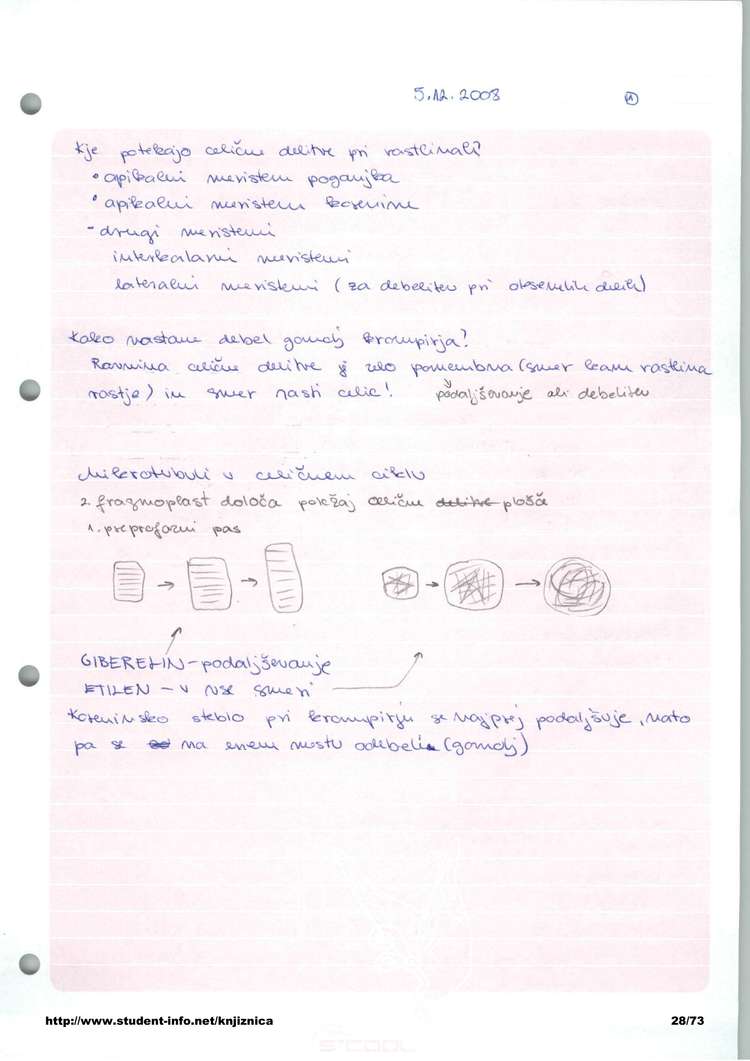 5.12.2008
1
Kje potekajo celične delitve pri rastlinah?
• apikalni meristem poganjka
• apikalni meristem korenine
- drugi meristemi
interkalarni meristemi
lateralni meristemi (za debelitev pri olesenelih delih)
Kako nastane debel gomolj krompirja?
Ravnina celične delitve je zelo pomembna (smer kam rastlina
rastje) in smer rasti celic! podaljševanje ali debelitev
Mikrotubuli v celičnem ciklu
2. fragmoplast določa položaj celične delitve plošče
1. preprofazni pas
GIBERELIN - podaljševanje
ETILEN - v vse smeri
Koreninsko steblo pri krompirju se najprej podaljšuje, nato
pa se na enem mestu odebeli (gomolj)
http://www.student-info.net/knjiznica
28/73
S'COOL